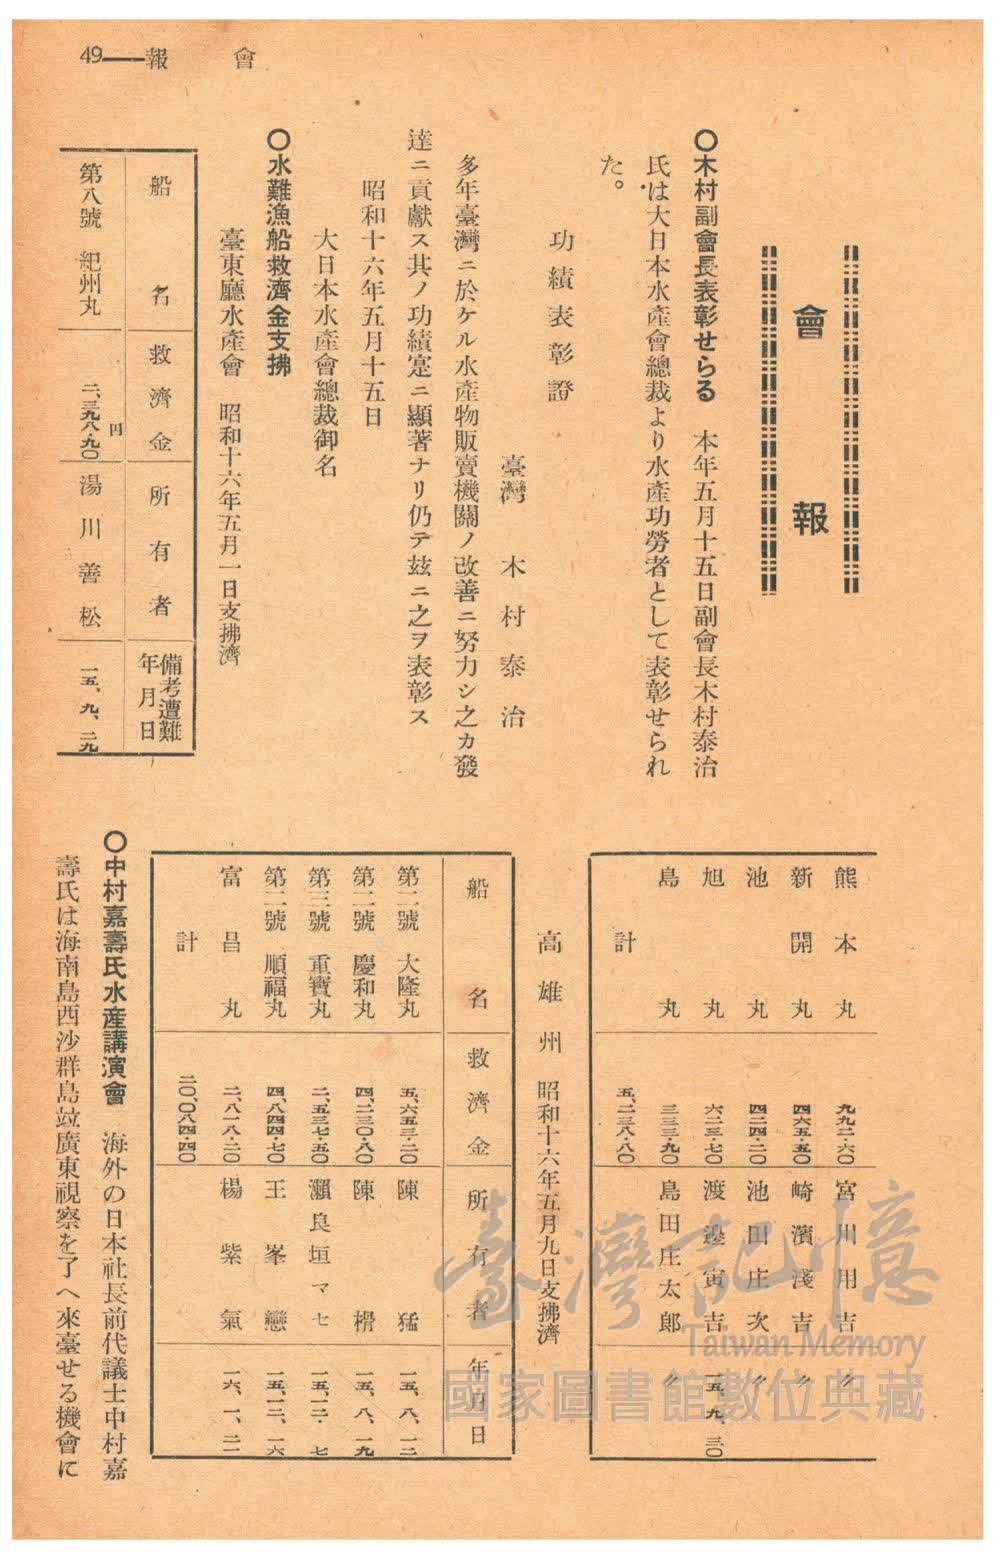 會報——49
會報
〇木村副會長表彰せらる　本年五月十五日副會長木村泰治
氏は大日本水產會總裁より水產功勞者として表彰せられ
た。
功績表彰證
臺灣　木村泰治
多年臺灣ニ於ケル水產物販賣機關ノ改善ニ努力シ之カ發
達ニ貢獻ス其ノ功績寔ニ顯著ナリ仍テ玆ニ之ヲ表彰ス
昭和十六年五月十五日
大日本水產會總裁御名
〇水難漁船救濟金支拂
臺東廳水產會　昭和十六年五月一日支拂濟
船名　救濟金　所有者　備考遭難年月日
第八號　紀州丸　二、三九八・九〇円　湯川善松　一五、九、二九
熊本丸　九九二・六〇　宮川用吉　〃
新開丸　四六五・五〇　崎濱淺吉　〃
池丸　四二四・二〇　池田庄次　〃
旭丸　六二三・七〇　渡邉寅吉　一五、九、三〇
島丸　三三三・九〇　島田庄太郎　〃
計　五、二三八・八〇
高雄州　昭和十六年五月九日支拂濟
船名　救濟金　所有者　年月日
第二號　大隆丸　五、六五三・二〇　陳猛　一五、八、一二
第二號　慶和丸　四、二三〇・八〇　陳　一五、八、一九
第三號　重寶丸　二、五三七・五〇　瀨良垣マセ　一五、一二・七
第二號　順福丸　四、八四四・七〇　王峯戀　一五、一二、一六
富昌丸　二、八一八・二〇　楊紫氣　一六、一、二一
計　二〇、〇八四・四〇
〇中村嘉壽氏水產講演會　海外の日本社長前代議士中村嘉
壽氏は海南島西沙群島竝廣東視察を了へ來臺せる機會に
臺灣記憶
Taiwan Memory
國家圖書館數位典藏